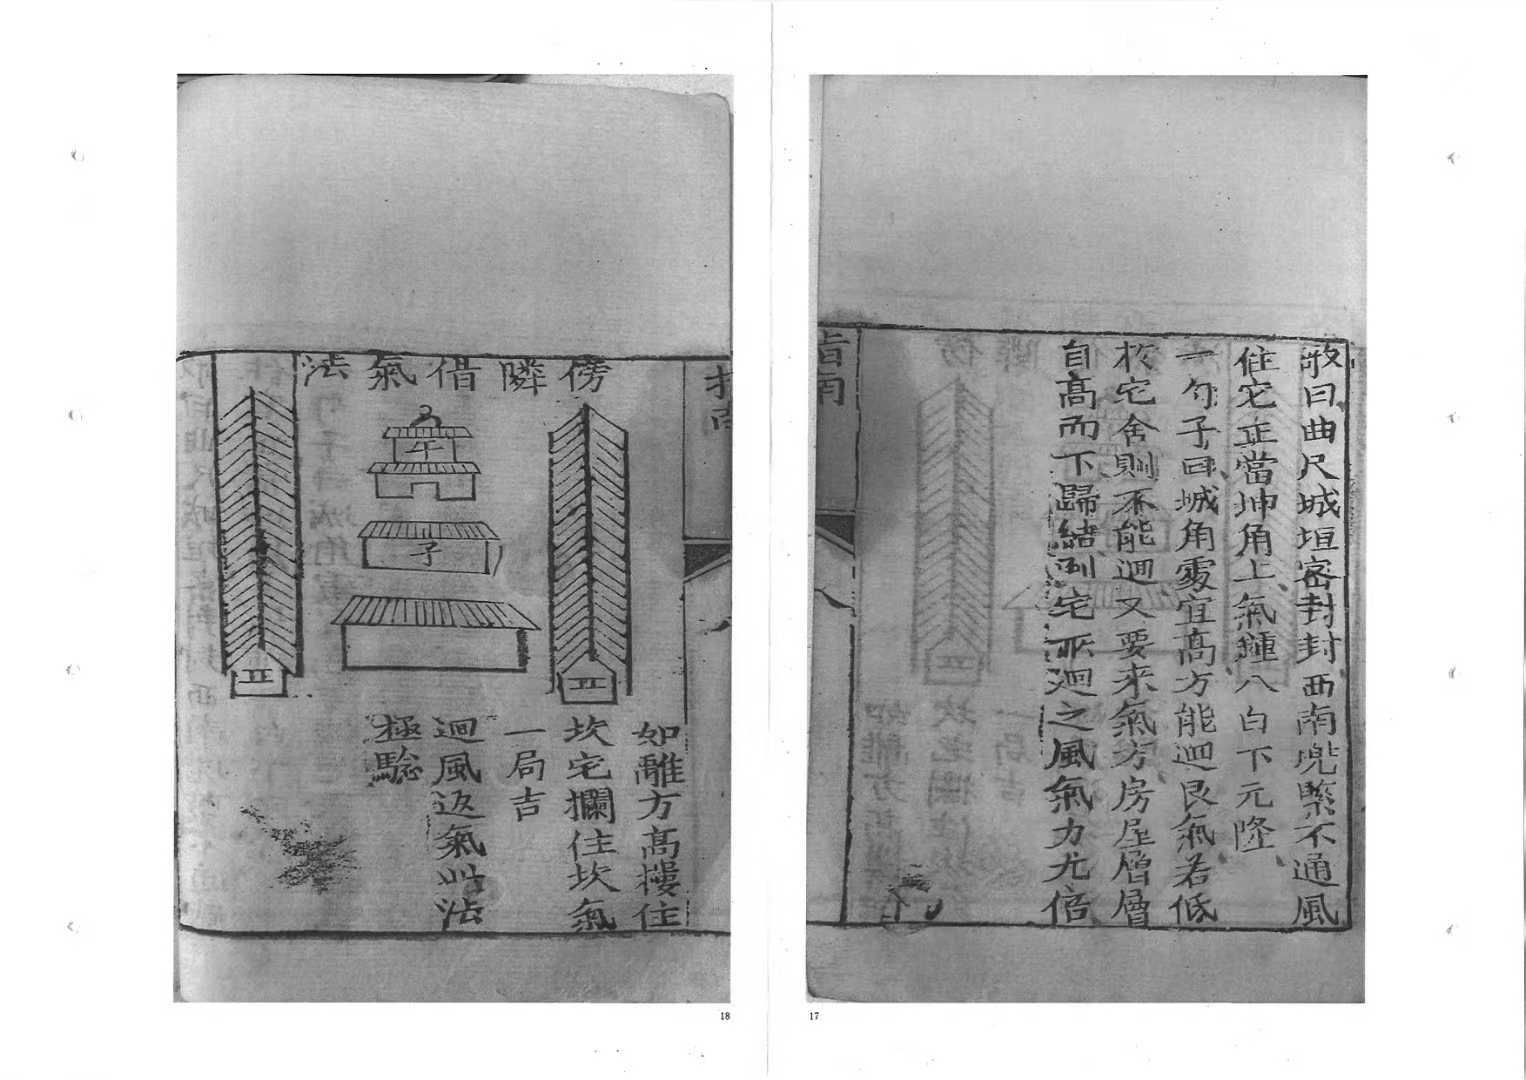 敀曰曲尺城垣密封封西南兜緊不通風
住宅正當坤角上氣鍾八白下元隆
一勺子曰城角處宜高方能迴艮氣若低
於宅舍則不能迴又要来氣方房屋層層
自高而下歸結到宅所迴之風氣力尤倍
指南
17
指南
傍隣借氣法
午
子
如離方高樓住
坎宅攔住坎氣
一局吉
迴風返氣此法
極驗
18